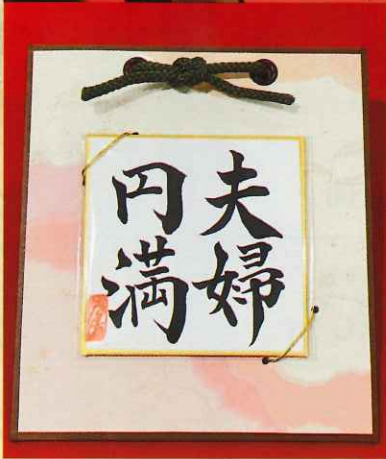 夫婦
円満